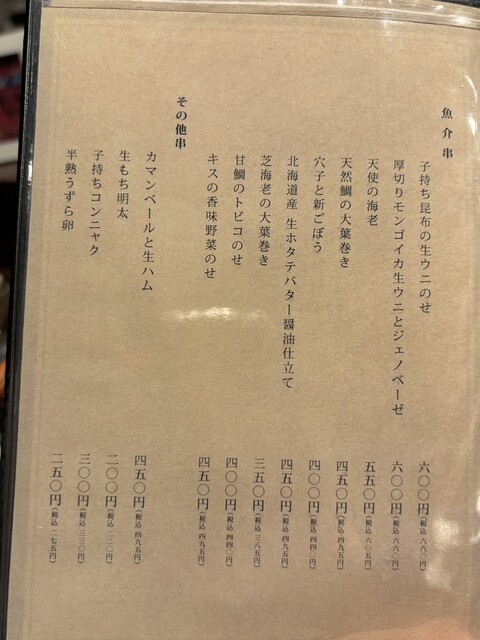 魚介串
子持ち昆布の生ウニのせ 六〇〇円(税込 六六〇円)
厚切りモンゴイカ生ウニとジェノベーゼ 六〇〇円(税込 六六〇円)
天使の海老 五五〇円(税込 六〇五円)
天然鯛の大葉巻き 四五〇円(税込 四九五円)
穴子と新ごぼう 四〇〇円(税込 四四〇円)
北海道産 生ホタテバター醤油仕立て 四五〇円(税込 四九五円)
芝海老の大葉巻き 三五〇円(税込 三八五円)
甘鯛のトビコのせ 四〇〇円(税込 四四〇円)
キスの香味野菜のせ 四五〇円(税込 四九五円)
その他串
カマンベールと生ハム 四五〇円(税込 四九五円)
生もち明太 二〇〇円(税込 二二〇円)
子持ちコンニャク 三〇〇円(税込 三三〇円)
半熟うずら卵 二五〇円(税込 二七五円)